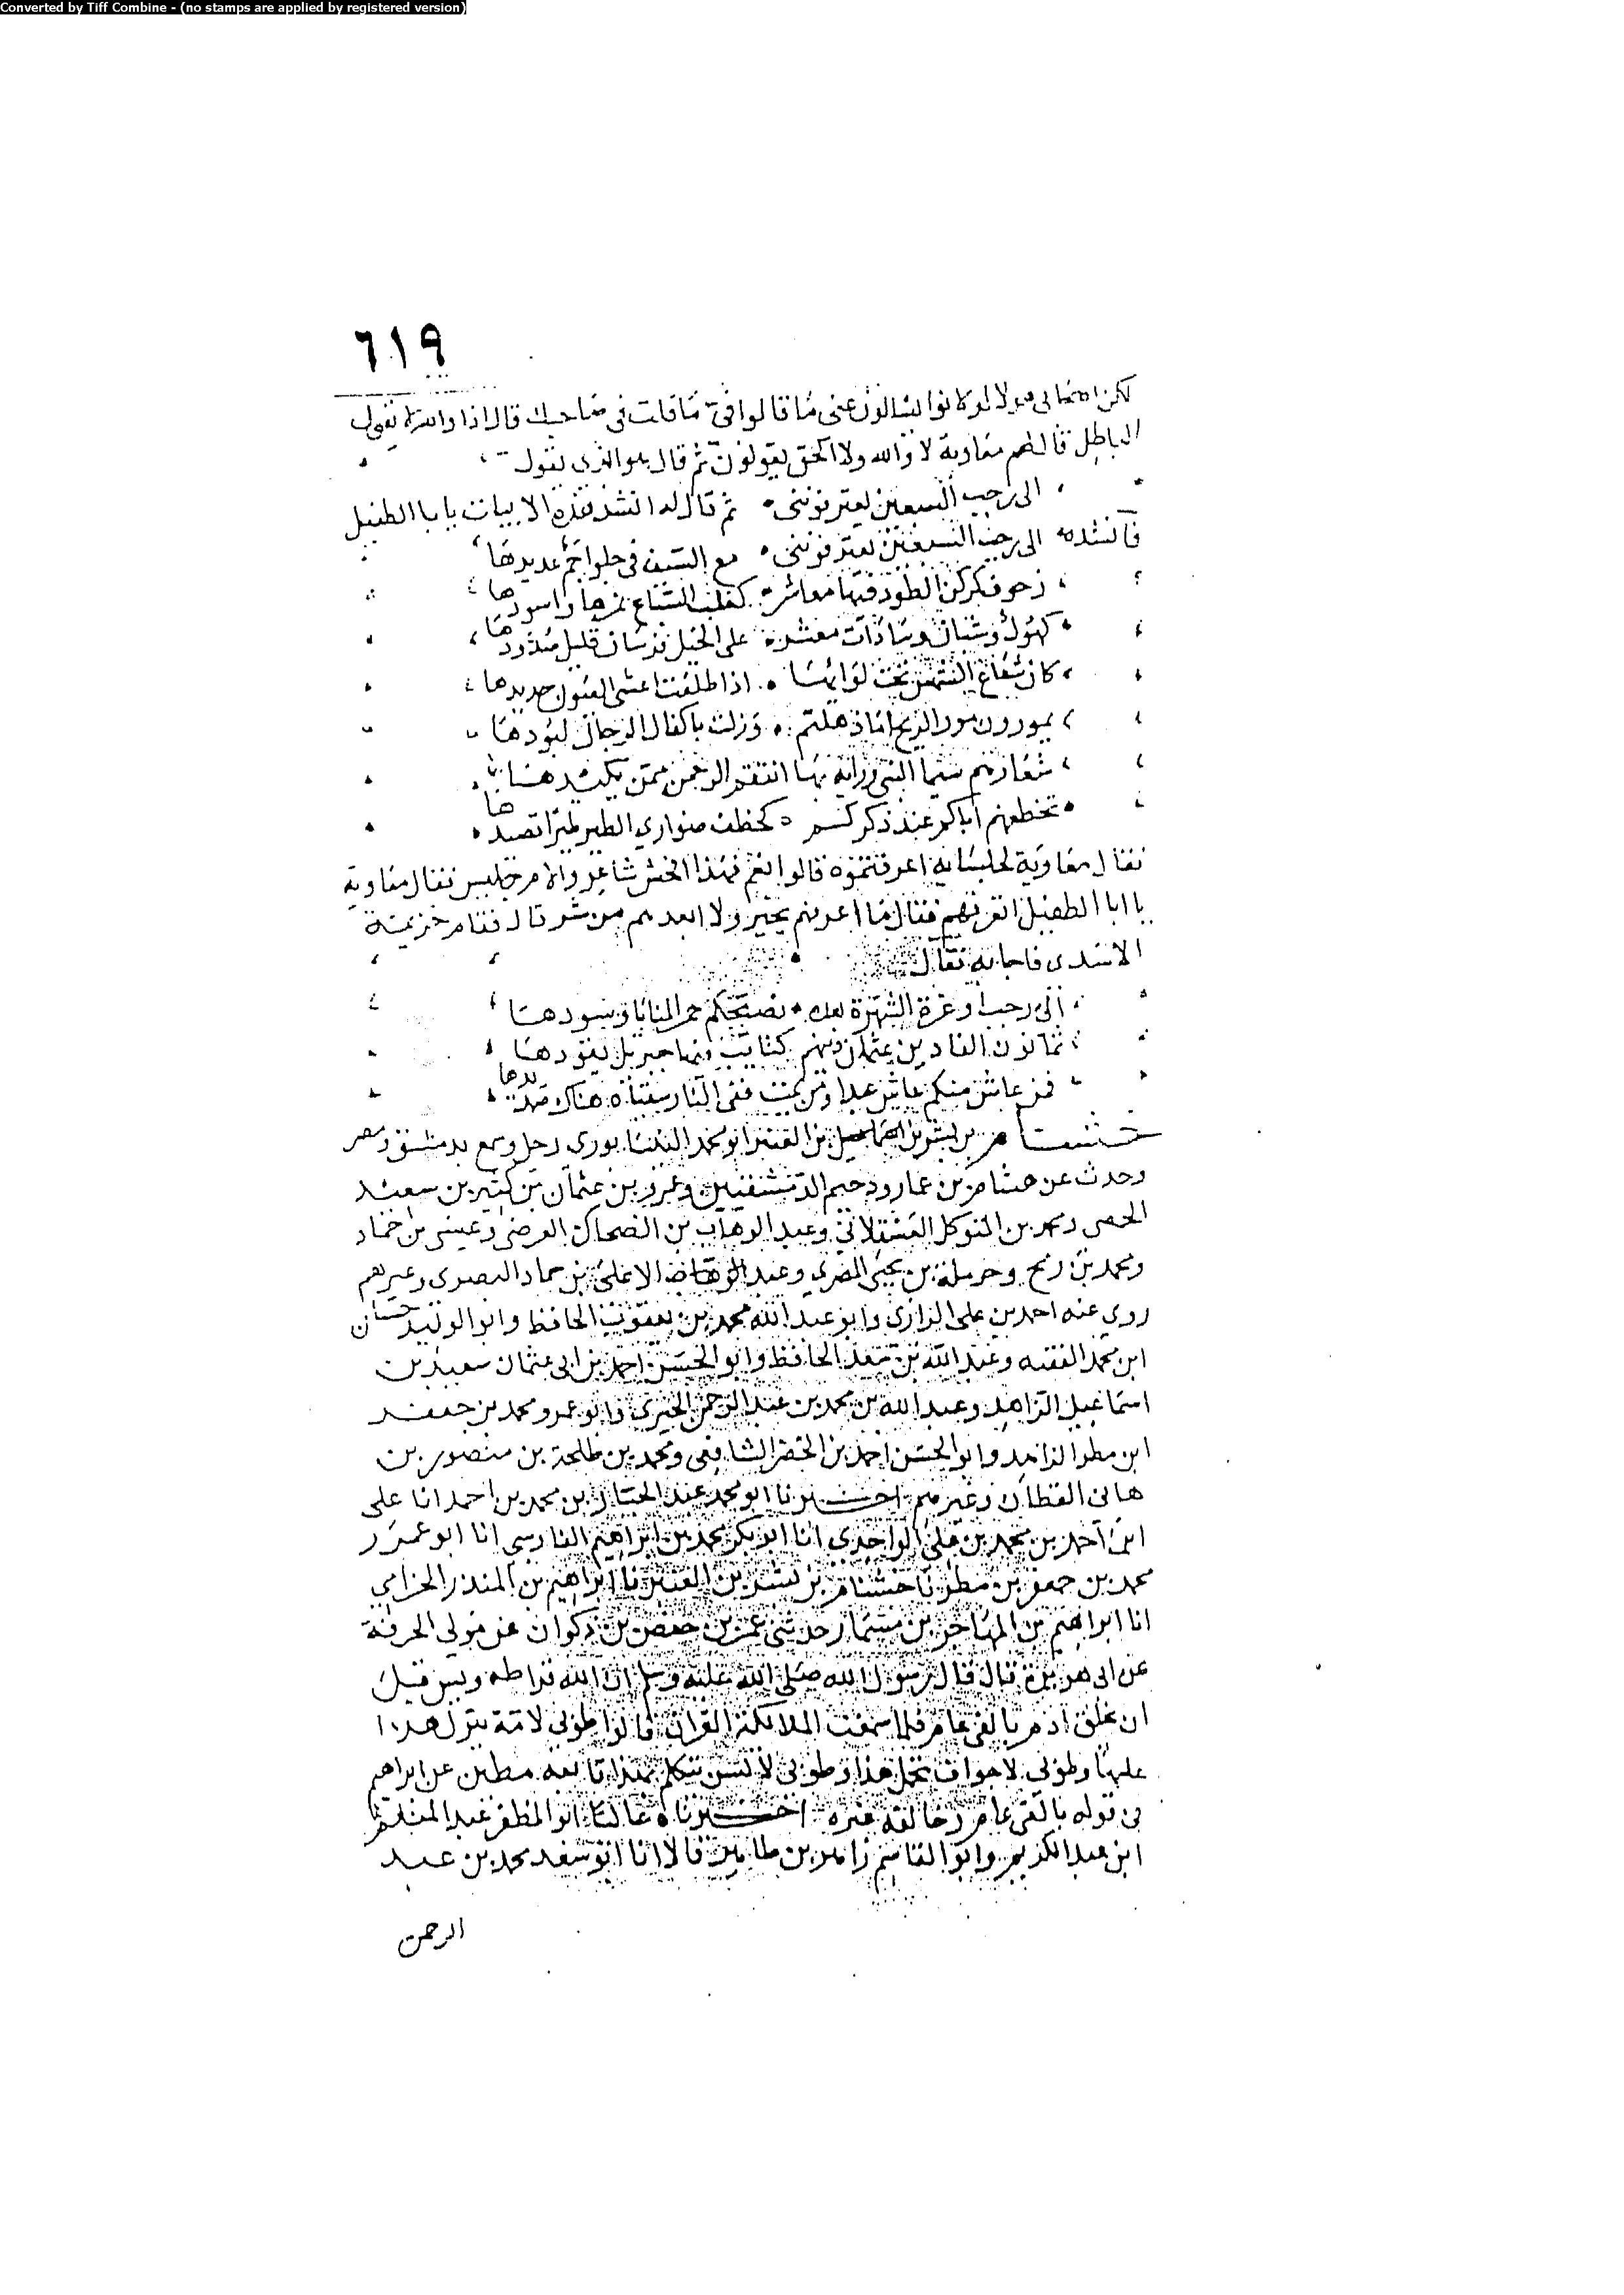 Converted by Tiff Combine - (no stamps are applied by registered version)
٦١٩
لكن اصحابي هولا لو كانوا يسالون عني ما قالوا في ما قلت في صاحبك قال اذا والله لا نقول
الباطل قال لهم معاوية لا والله ولا الحق يقولون ثم قال هو الذي يقول
الى رجب السبعين يعترفونني ثم قال له انشد هذه الابيات يا با الطفيل
فانشده الى رجب السبعين يعترفونني مع السيف في جلوا جم عديدها
زحوف كركن الطود فيها معاشر كغلب السباع نمرها واسودها
كهول وشبان وسادات معشر على الخيل فرسان قليل صدودها
كان شعاع الشمس تحت لوائها اذا طلعت اعشى العيون حديدها
يمورون مور الريح اما ذهلتم وزلت باكفال الرجال لبودها
شعارهم سيما النبي وراية بها انتقم الرحمن ممن يكيدها
تخطفهم اياكم عند ذكركم كخطف ضواري الطير طيرا تصيدها
فقال معاوية لجلسايه اعرفتموه قالوا نعم فهذا افحش شاعر والام جليس فقال معاوية
يا ابا الطفيل اتعرفهم فقال ما اعرفهم بخير ولا ابعدهم من شر قال فقام خزيمة
الاسدي فاجابه فقال
الى رجب او غرة الشهر بعده تصبحكم حمر المنايا وسودها
ثمانون الفا دين عثمان دينهم كتايب فيها جبريل يقودها
فمن عاش منكم عاش عبدا ومن يمت ففي النار سقياه هناك صديدها
خشنام بن بشر بن اسماعيل بن العنبر ابو محمد النيسابوري رحل وسمع بدمشق ومصر
وحدث عن هشام بن عمار ودحيم الدمشقيين وعمرو بن عثمان بن كثير بن سعيد
الحمصي ومحمد بن المتوكل العسقلاني وعبد الوهاب بن الضحاك العرضي وعيسى بن حماد
ومحمد بن رمح وحرملة بن يحيى المصري وعبد الاعلى بن حماد البصري وغيرهم
روى عنه احمد بن علي الرازي وابو عبد الله محمد بن يعقوب الحافظ وابو الوليد حسان
ابن محمد الفقيه وعبد الله بن سعد الحافظ وابو الحسن احمد بن ابي عثمان سعيد بن
اسماعيل الزاهد وعبد الله بن محمد بن عبد الرحمن الحيري وابو عمرو محمد بن جعفر
ابن مطر الزاهد وابو الحسن احمد بن الخضر الشافعي ومحمد بن طلحة بن منصور بن
هاني القطان وغيرهم اخبرنا ابو محمد عبد الجبار بن محمد بن احمد انا علي
ابن احمد بن محمد بن علي الواحدي انا ابو بكر محمد بن ابراهيم الفارسي انا ابو عمرو
محمد بن جعفر بن مطر نا خشنام بن بشر بن العنبر نا ابراهيم بن المنذر الحزامي
انا ابراهيم بن المهاجر بن مسمار حدثني عمر بن حفص بن ذكوان عن مولى الحرقة
عن ابي هريرة قال قال رسول الله صلى الله عليه وسلم ان الله قرا طه ويس قبل
ان يخلق ادم بالفي عام فلما سمعت الملائكة القران قالوا طوبى لامة ينزل هذا
عليها وطوبى لاجواف تحمل هذا وطوبى لالسن تتكلم بهذا تابعه مطين عن ابراهيم
في قوله بالفي عام وخالفه غيره اخبرناه عاليا ابو المظفر عبد المنعم
ابن عبد الكريم وابو القاسم زاهر بن طاهر قالا انا ابو سعد محمد بن عبد
الرحمن